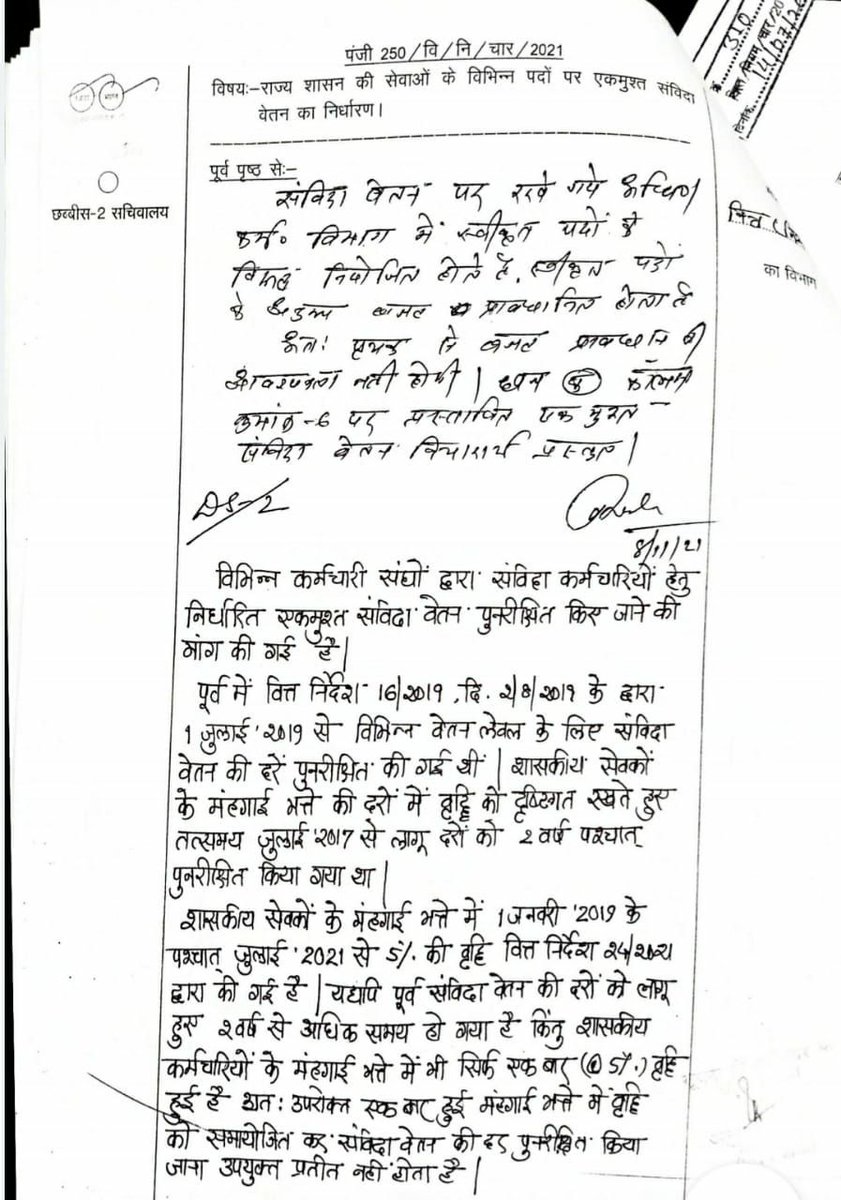 पंजी 250/वि/नि/चार/2021
विषयः-राज्य शासन की सेवाओं के विभिन्न पदों पर एकमुश्त संविदा
वेतन का निर्धारण।
पूर्व पृष्ठ सेः-
छब्बीस-2 सचिवालय
संविदा वेतन पर रखे गये
विभाग में स्वीकृत पदों के
नियोजित होते हैं. स्वीकृत पदों
के बजट प्रावधानित होता है
अतः पृथक से बजट प्रावधान की
आवश्यकता नहीं होगी। कॉलम
क्रमांक-6 पर प्रस्तावित एक मुश्त
संविदा वेतन विचारार्थ प्रस्तुत।
DS-2
8/11/21
विभिन्न कर्मचारी संघों द्वारा संविदा कर्मचारियों हेतु
निर्धारित एकमुश्त संविदा वेतन पुनरीक्षित किए जाने की
मांग की गई है।
पूर्व में वित्त निर्देश 16/2019, दि. 2/8/2019 के द्वारा
1 जुलाई '2019 से विभिन्न वेतन लेवल के लिए संविदा
वेतन की दरें पुनरीक्षित की गई थीं। शासकीय सेवकों
के मंहगाई भत्ते की दरों में वृद्धि को दृष्टिगत रखते हुए
तत्समय जुलाई '2017 से लागू दरों को 2 वर्ष पश्चात्
पुनरीक्षित किया गया था।
शासकीय सेवकों के मंहगाई भत्ते में 1 जनवरी '2019 के
पश्चात् जुलाई '2021 से 5% की वृद्धि वित्त निर्देश 24/2021
द्वारा की गई है। यद्यपि पूर्व संविदा वेतन की दरों को लागू
हुए 2 वर्ष से अधिक समय हो गया है किंतु शासकीय
कर्मचारियों के मंहगाई भत्ते में भी सिर्फ एक बार (@ 5%) वृद्धि
हुई है अतः उपरोक्त एक बार हुई मंहगाई भत्ते में वृद्धि
को समायोजित कर संविदा वेतन की दर पुनरीक्षित किया
जाना उपयुक्त प्रतीत नहीं होता है।
310
दिनांक
का विभाग